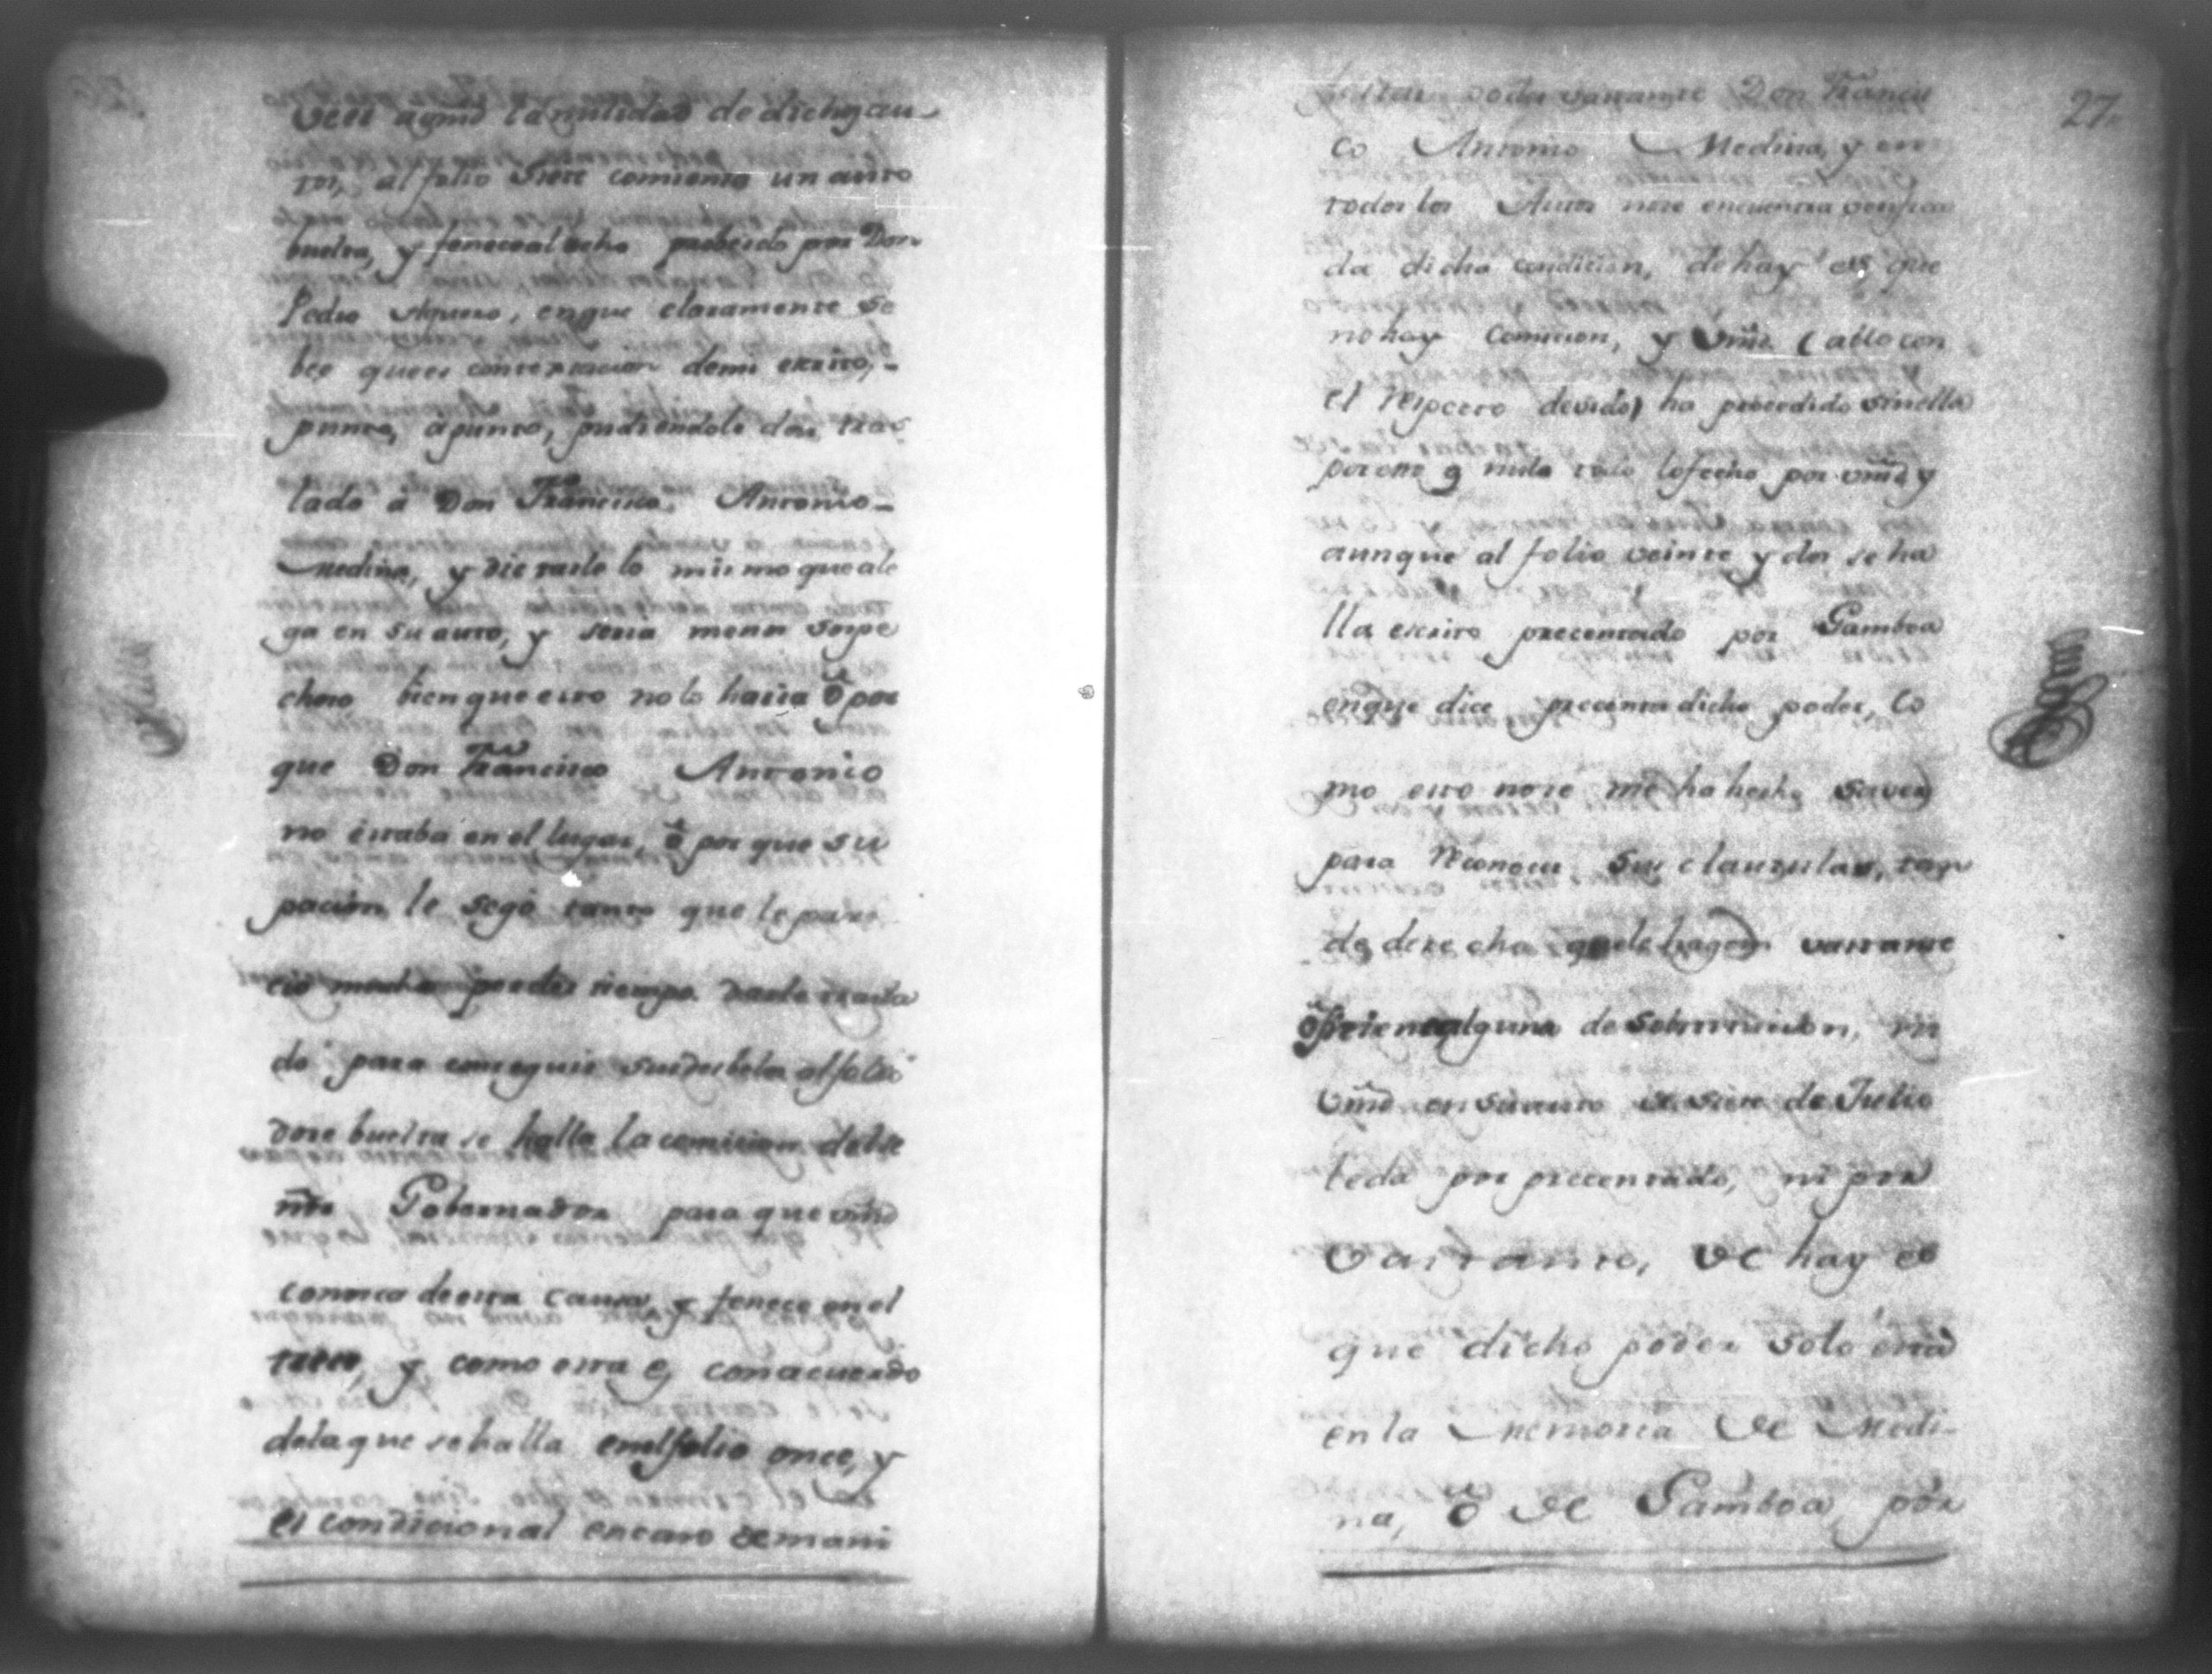 bere aun la nulidad de dichos au
tos, al folio siete comienza un auto
buelta, y fenece al ocho probeido por Don
Pedro Aguero, en que claramente se
bee que es contextacion demi escrito,
punto, apunto, pudiendole dar tras
lado á Don Francisco Antonio
Medina, y die rasele lo mismo que ale
ga en su auto, y seria menos sospe
choso bien que esto no lo haria ô por
que Don Francisco Antonio
no estaba en el lugar, ô por que su
pacion le segó tanto que le pare
cio mucho perder tiempo darle trasla
do para conseguir al folio
dose buelta se halla la comicion deste
mõr Gobernador para que vmd
conosca de esta causa, y fenece en el
trese, y como esta es con acuerdo
dela que se halla en el folio once, y
es condicional en caso de mani
festar poder vastante Don Francis
co Antonio Medina, y en
todos los Autos no se encuentra verifica
da dicha condicion, de hay es que
no hay Comicion, y Vmd. (ablo con
el respecto devido) ha procedido sin ella
por ONE q nula todo lo fecho por vmd y
aunque al folio veinte y dos se ha
lla escrito precentado por Gamboa
enque dice precenta dicho poder, Co
mo esto no se me ha hecho saver
para reconocer sus clausulas, tan
de derecha que le hagan vastante
ô si tiene alguna de sobstitucion, ni
Vmd en su auto de siete de Julio
le da por precentado, ni por
Vastante, de hay es
que dicho poder solo está
en la memoria de Medi-
na, ô de Gamboa, por
27.